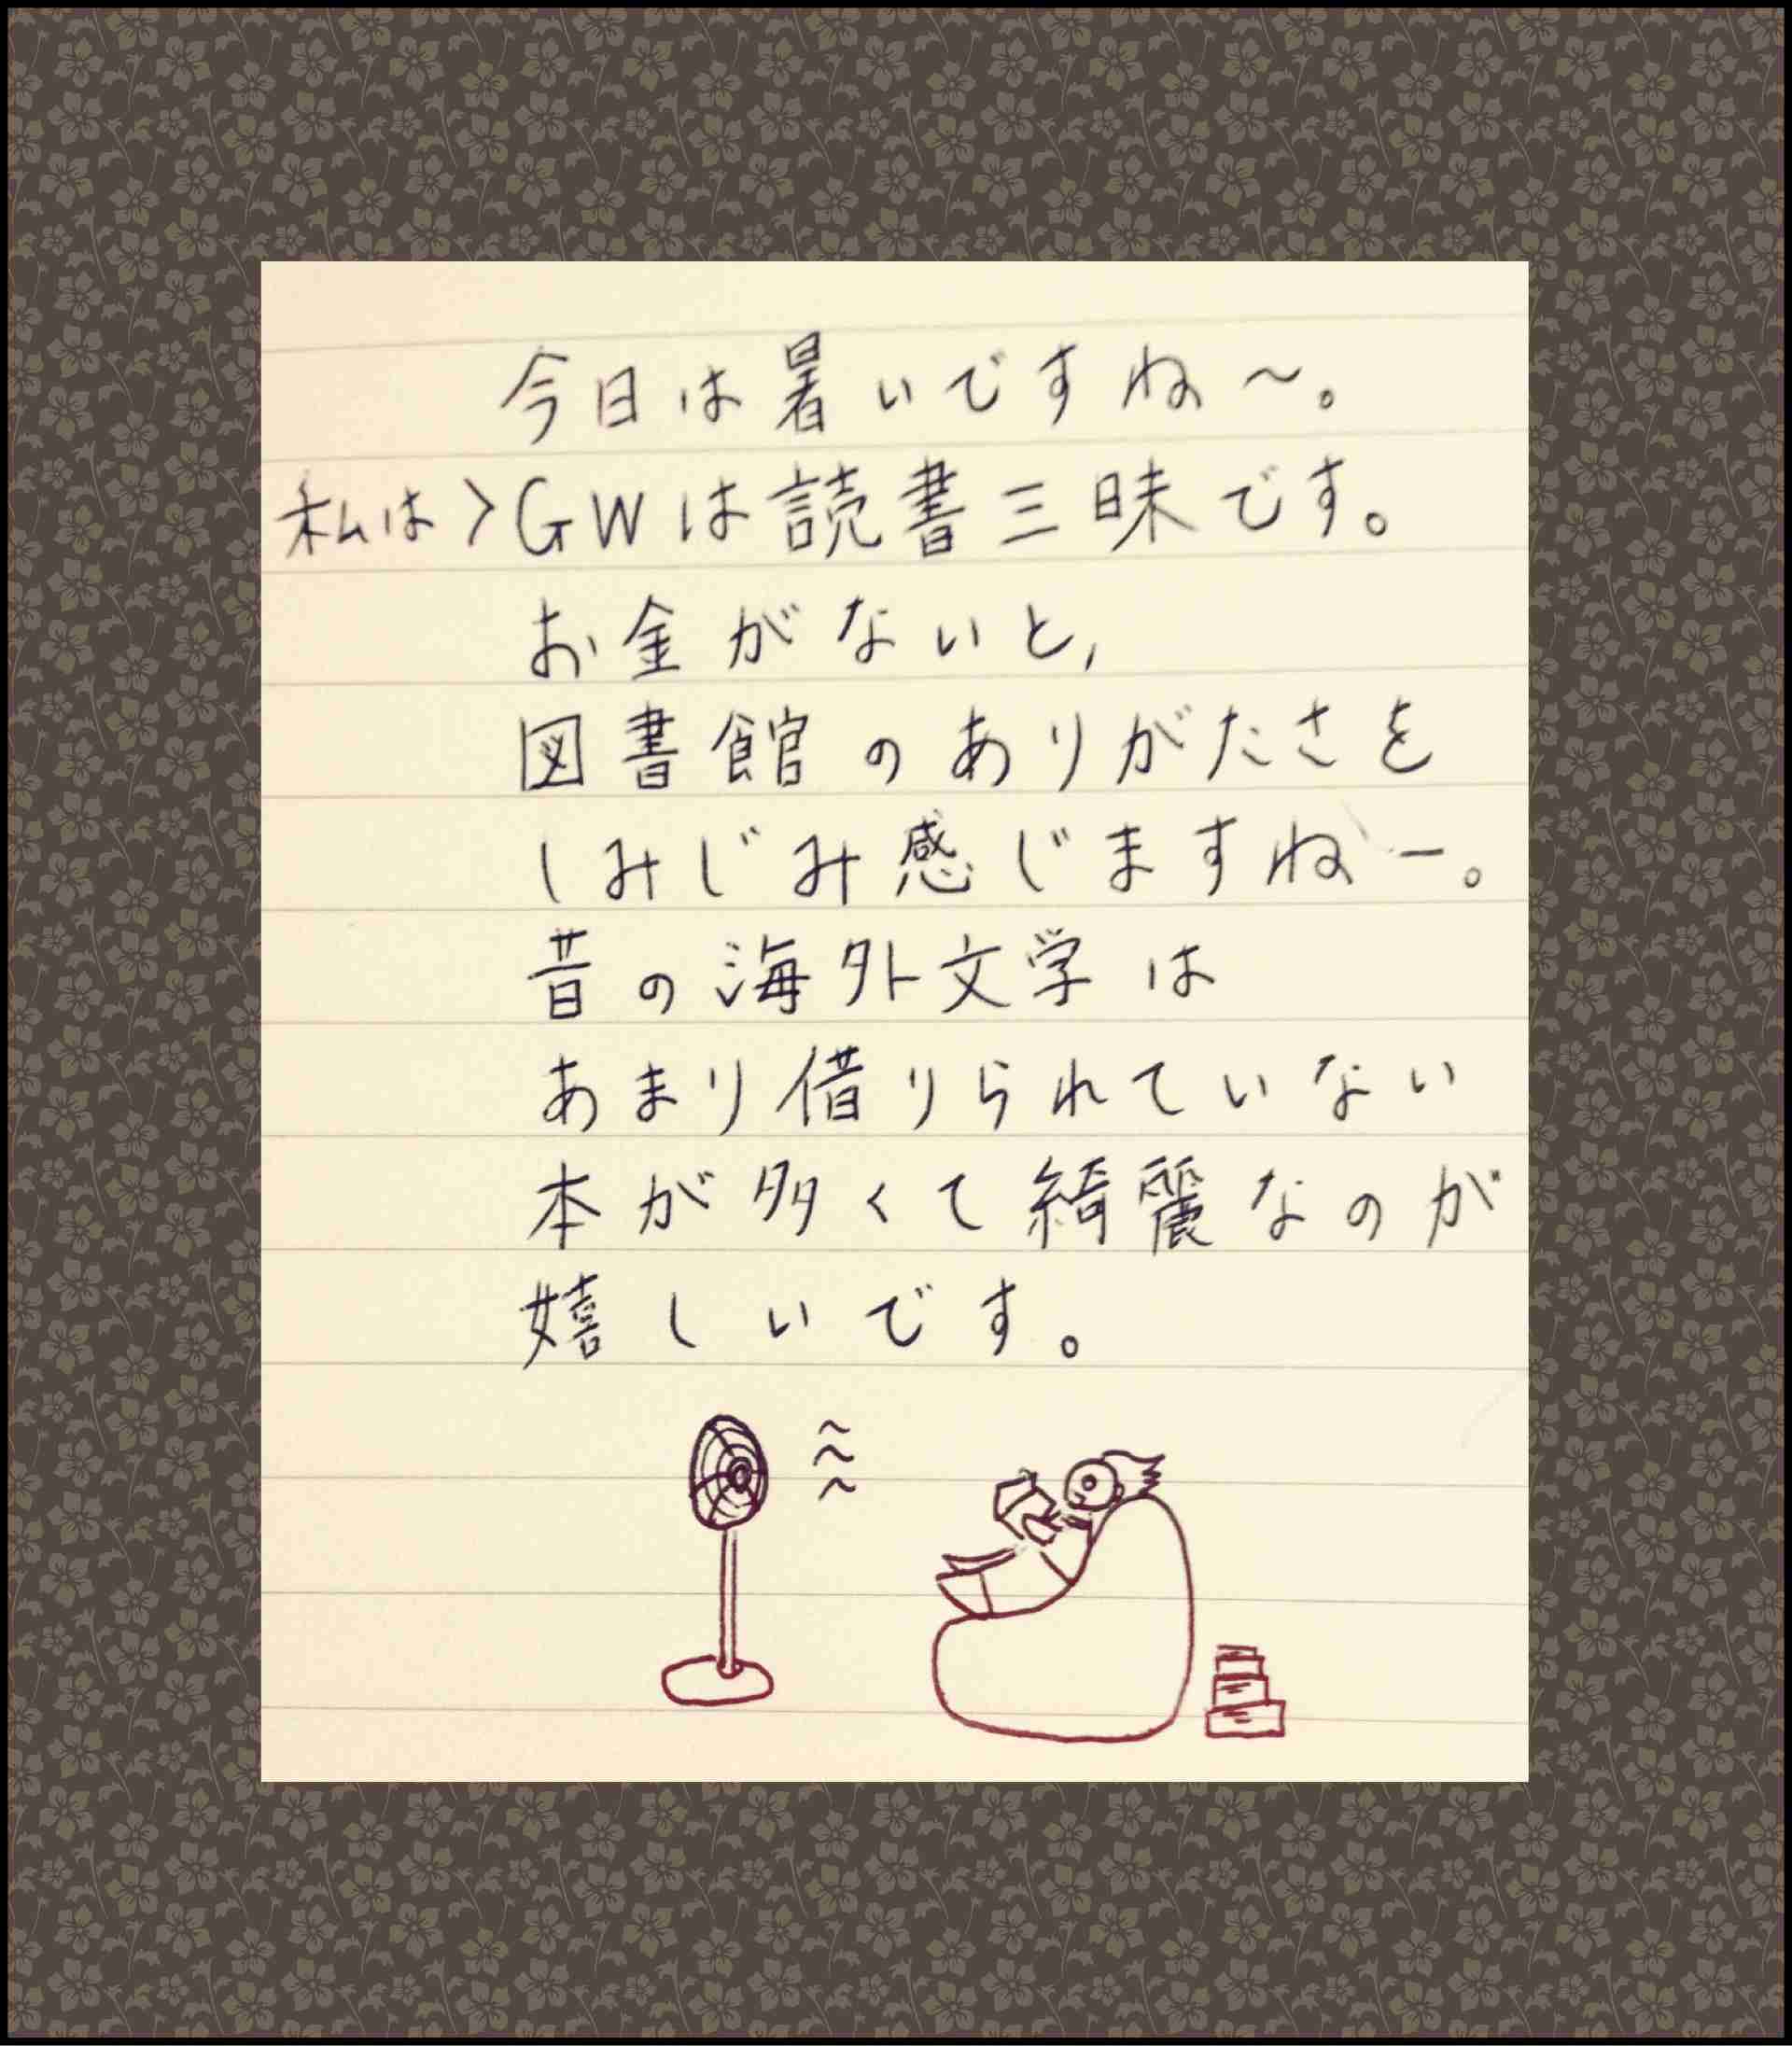 今日は暑いですね～。
私は>GWは読書三昧です。
お金がないと,
図書館のありがたさを
しみじみ感じますねー。
昔の海外文学は
あまり借りられていない
本が多くて綺麗なのが
嬉しいです。